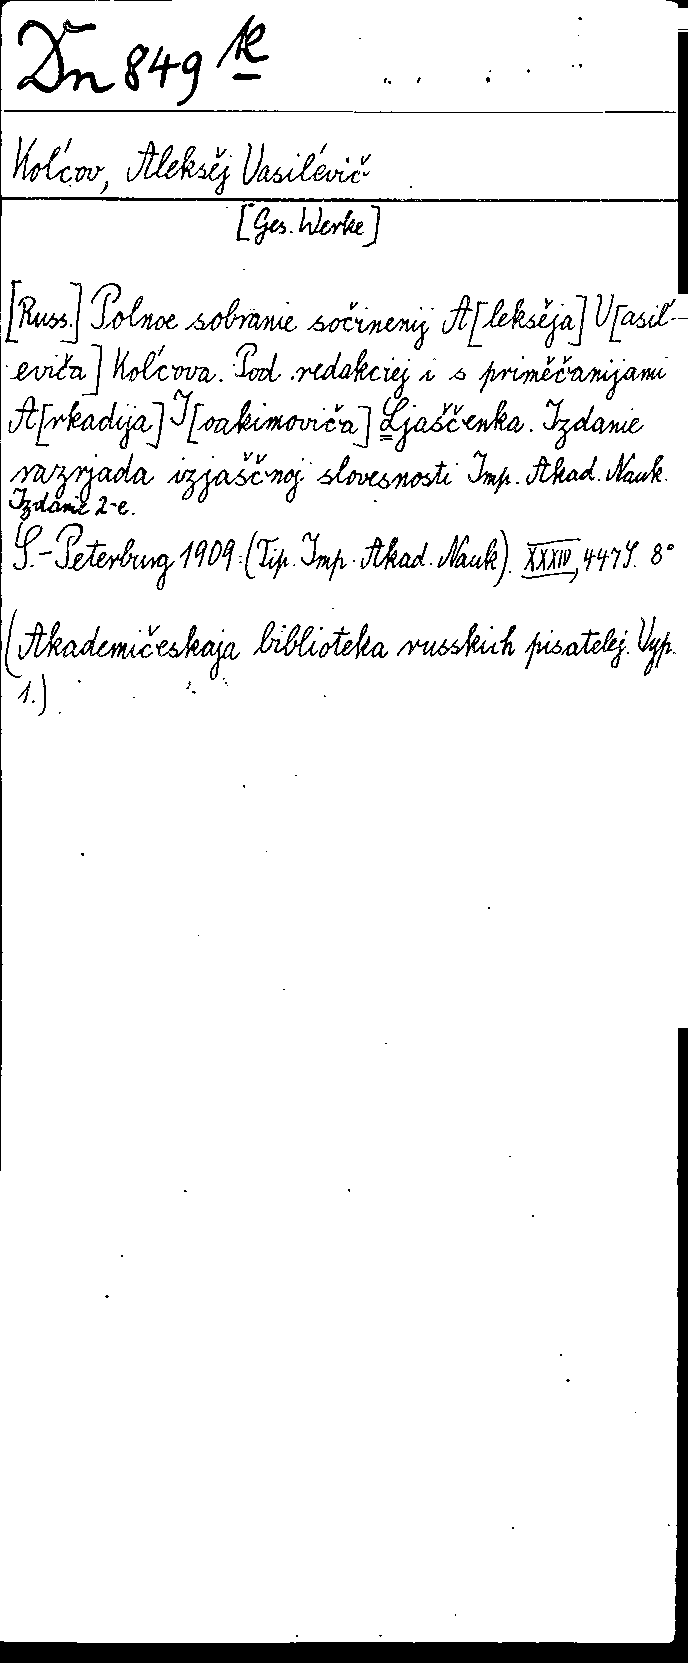 Dn 849 k
Kol'cov, Aleksěj Vasil'evič
[Ges. Werke]
[Russ.] Polnoe sobranie sočinenij A[leksěja] V[asil'-
eviča] Kol'cova. Pod redakciej i s priměčanijami
A[rkadija] I[oakimoviča] Ljaščenka. Izdanie
razrjada izjaščnoj slovesnosti Imp. Akad. Nauk.
Izdanie 2-e.
S.-Peterburg 1909. (Tip. Imp. Akad. Nauk). XXXIV, 447 S. 8°
(Akademičeskaja biblioteka russkich pisatelej. Vyp.
1.)